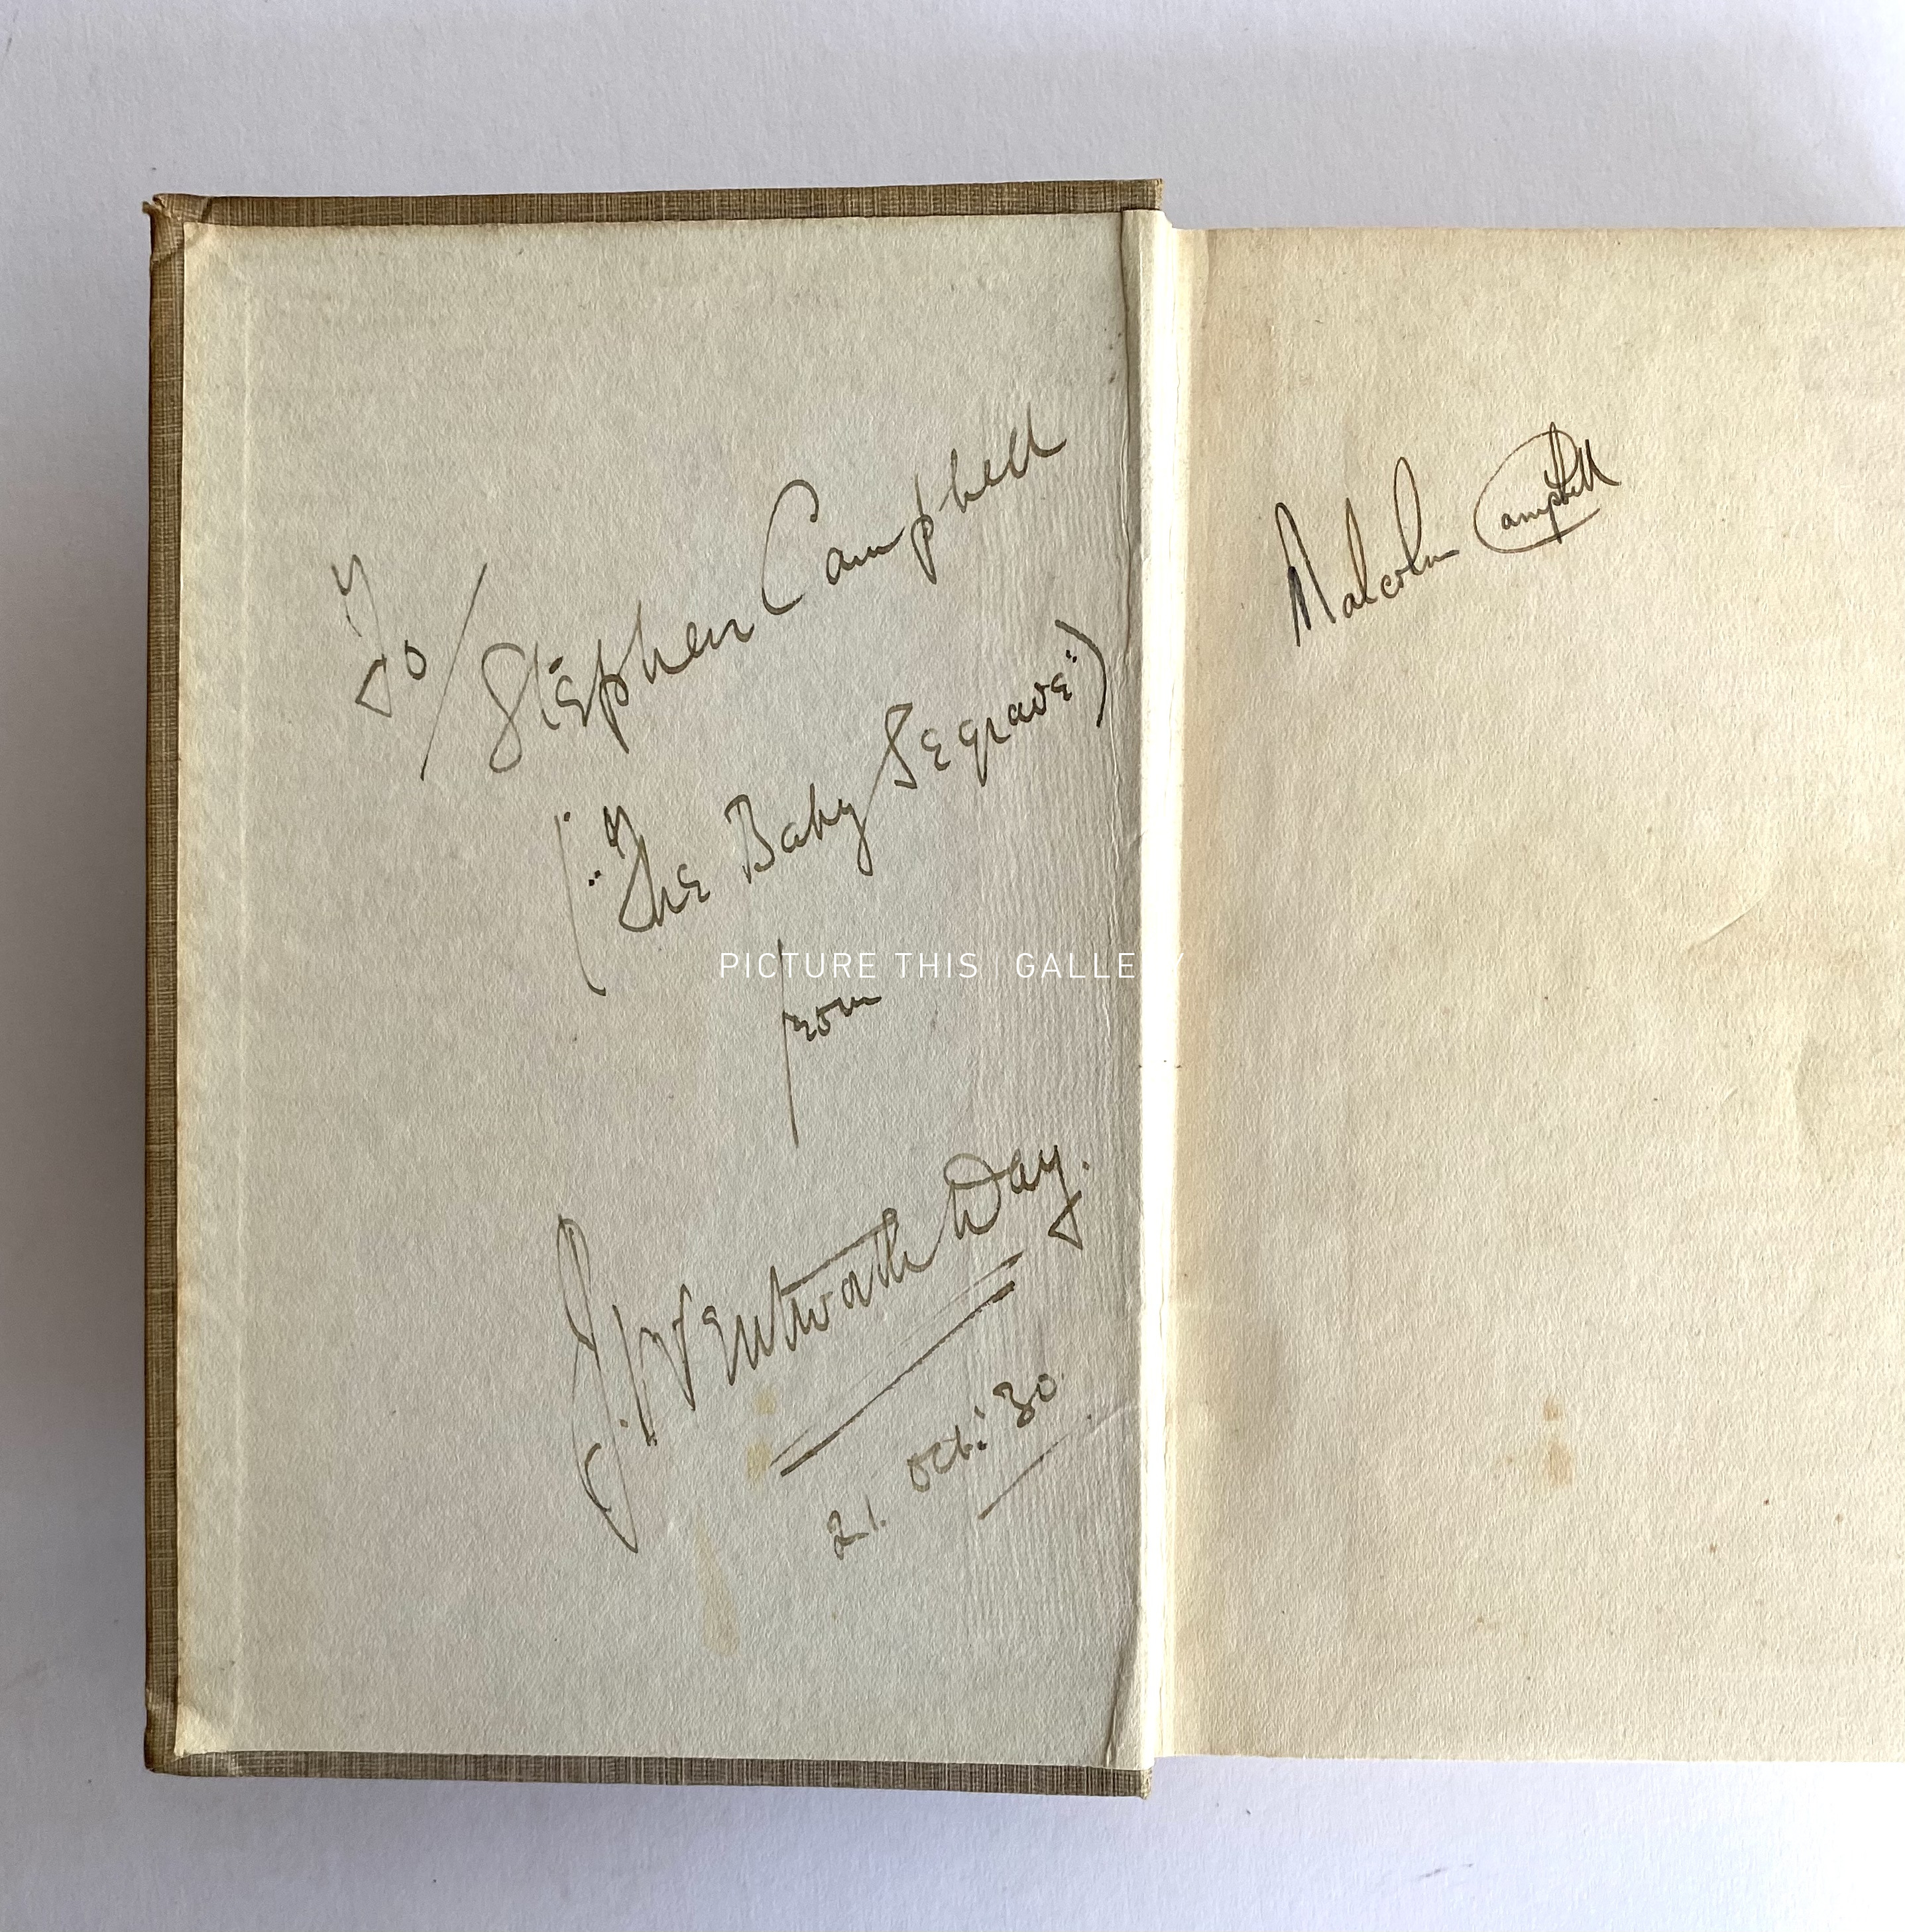 To/ Stephen Campbell
("The Baby Segrave")
from
J. Wentworth Day.
21. Oct: 30
Malcolm Campbell
PICTURE THIS | GALLERY